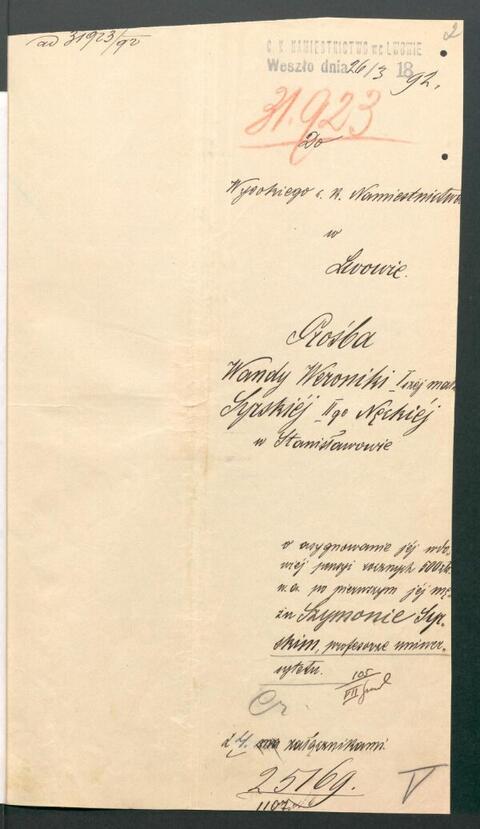 2
ad 31923/92
C. K. NAMIESTNICTWO we LWOWIE
Weszło dnia 26/3 18 92.
31.923
Do
Wysokiego c. k. Namiestnictwa
w
Lwowie.
Prośba
Wandy Weroniki I széj mał.
Syrskiéj II go Nęckiéj
w Stanisławowie
o asygnowanie jéj wdo-
wiéj pensyi rocznych 500 złr.
w. a. po pierwszym jéj mę-
żu Szymonie Syr-
skim, profesorze uniwer-
sytetu.
105
VII
z 4. załącznikami.
25169.
1107
V